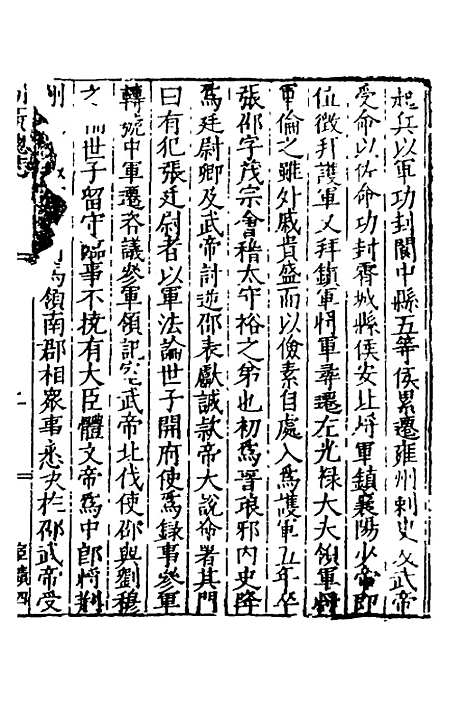 起兵以軍功封閬中縣五等侯累遷雍州刺史及武帝
受命以佐命功封霄城縣侯安北將軍鎮襄陽少帝即
位徵拜護軍又拜鎮軍將軍尋遷左光祿大夫領軍將
軍倫之雖外戚貴盛而以儉素自處入爲護軍五年卒
張邵字茂宗會稽太守裕之弟也初爲晉琅邪內史降
爲廷尉卿及武帝討逆邵表獻誠款帝大說命署其門
曰有犯張廷尉者以軍法論世子開府使爲錄事參軍
轉號中軍遷咨議參軍領記室武帝北伐使邵與劉穆
之 世子留守臨事不撓有大臣體文帝爲中郎將荊
州 爲領南郡相衆事悉決於邵武帝受